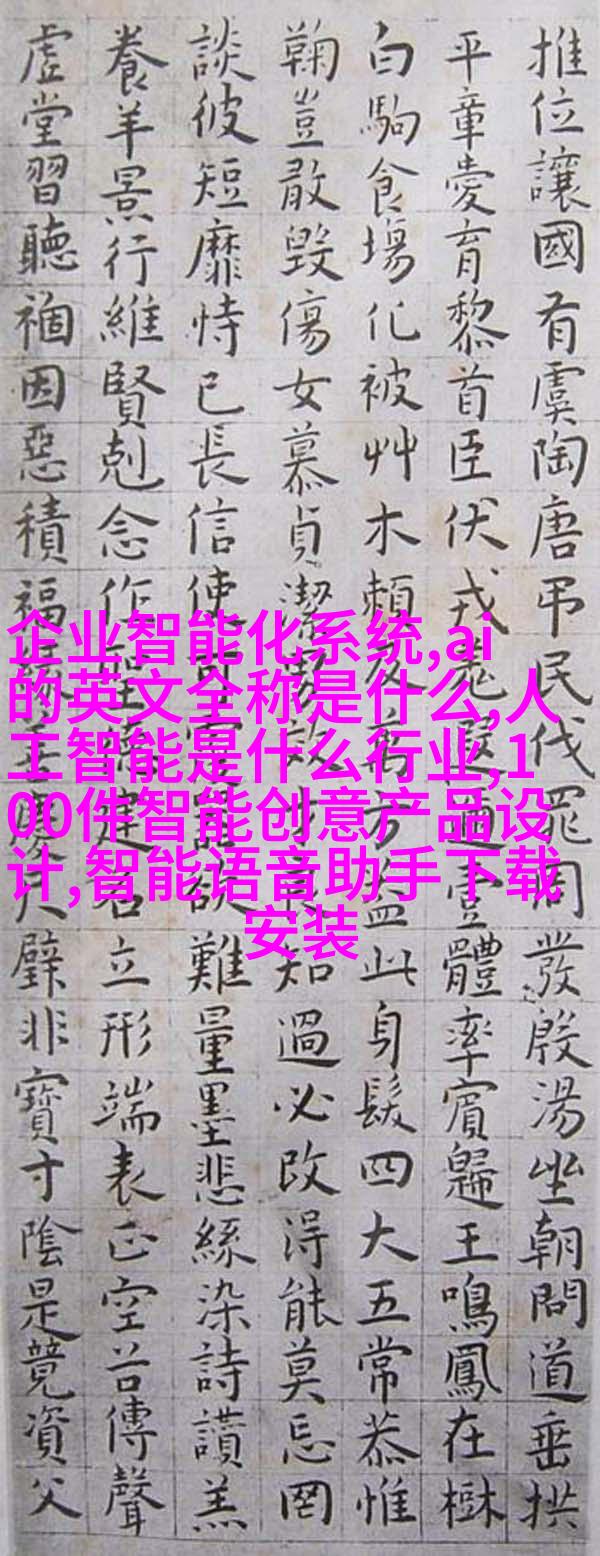 推位讓國有虞陶唐弔民伐罪周發殷湯坐朝問道垂拱
平章愛育黎首臣伏戎羌遐邇壹體率賓歸王鳴鳳在樹
白駒食場化被艸木賴及万方蓋此身髮四大五常恭惟
鞠豈敢毀傷女慕貞潔男效才良知過必改得能莫忘罔
談彼短靡恃己長信使可覆器欲難量墨悲絲染詩讃羔
養羊景行維賢剋念作聖德建名立形端表正空谷傳聲
虛堂習聽禍因惡積福緣善慶尺璧非寶寸陰是競資父
企业智能化系统,ai
的英文全称是什么,人
工智能是什么行业,1
00件智能创意产品设
计,智能语音助手下载
安装